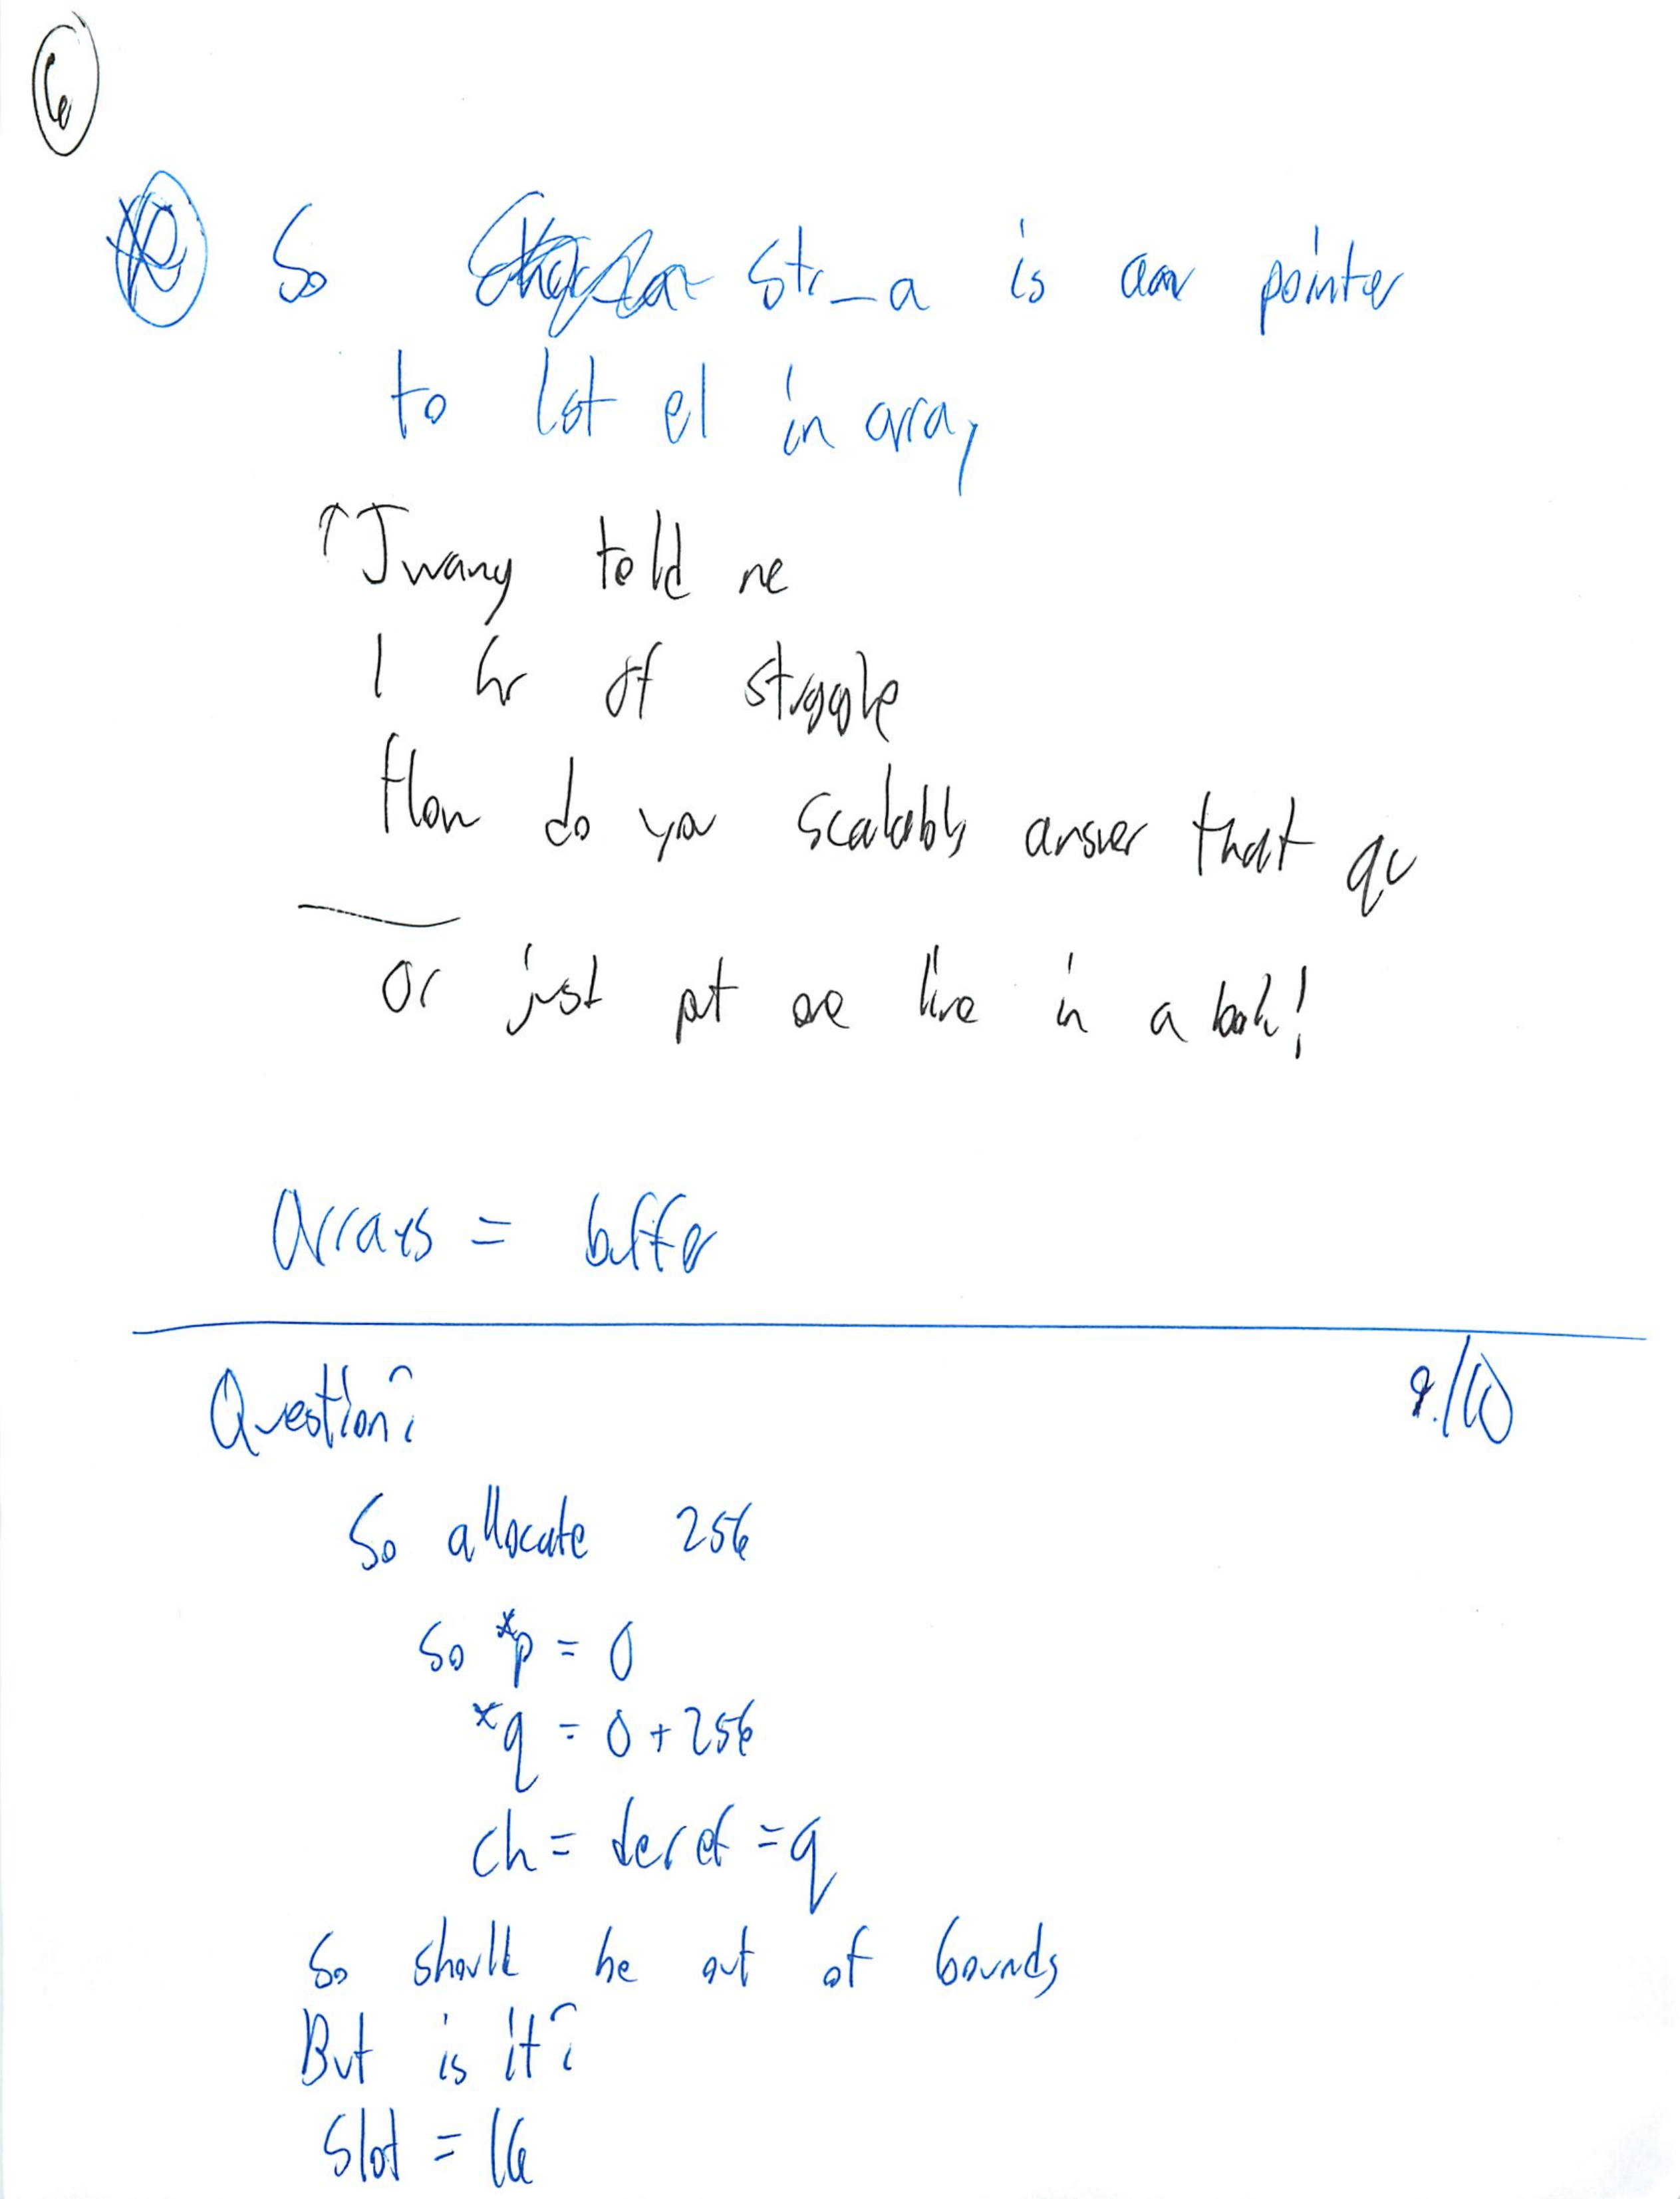 6
So str_a is a pointer
to 1st el in array
↑ Jwang told me
1 hr of struggle
How do you scalably answer that qu
or just put one line in a book!
Arrays = buffer
Question? 9/10
So allocate 256
So *p = 0
*q = 0 + 256
ch = deref = q
So should be out of bounds
But is it?
Slot = 16